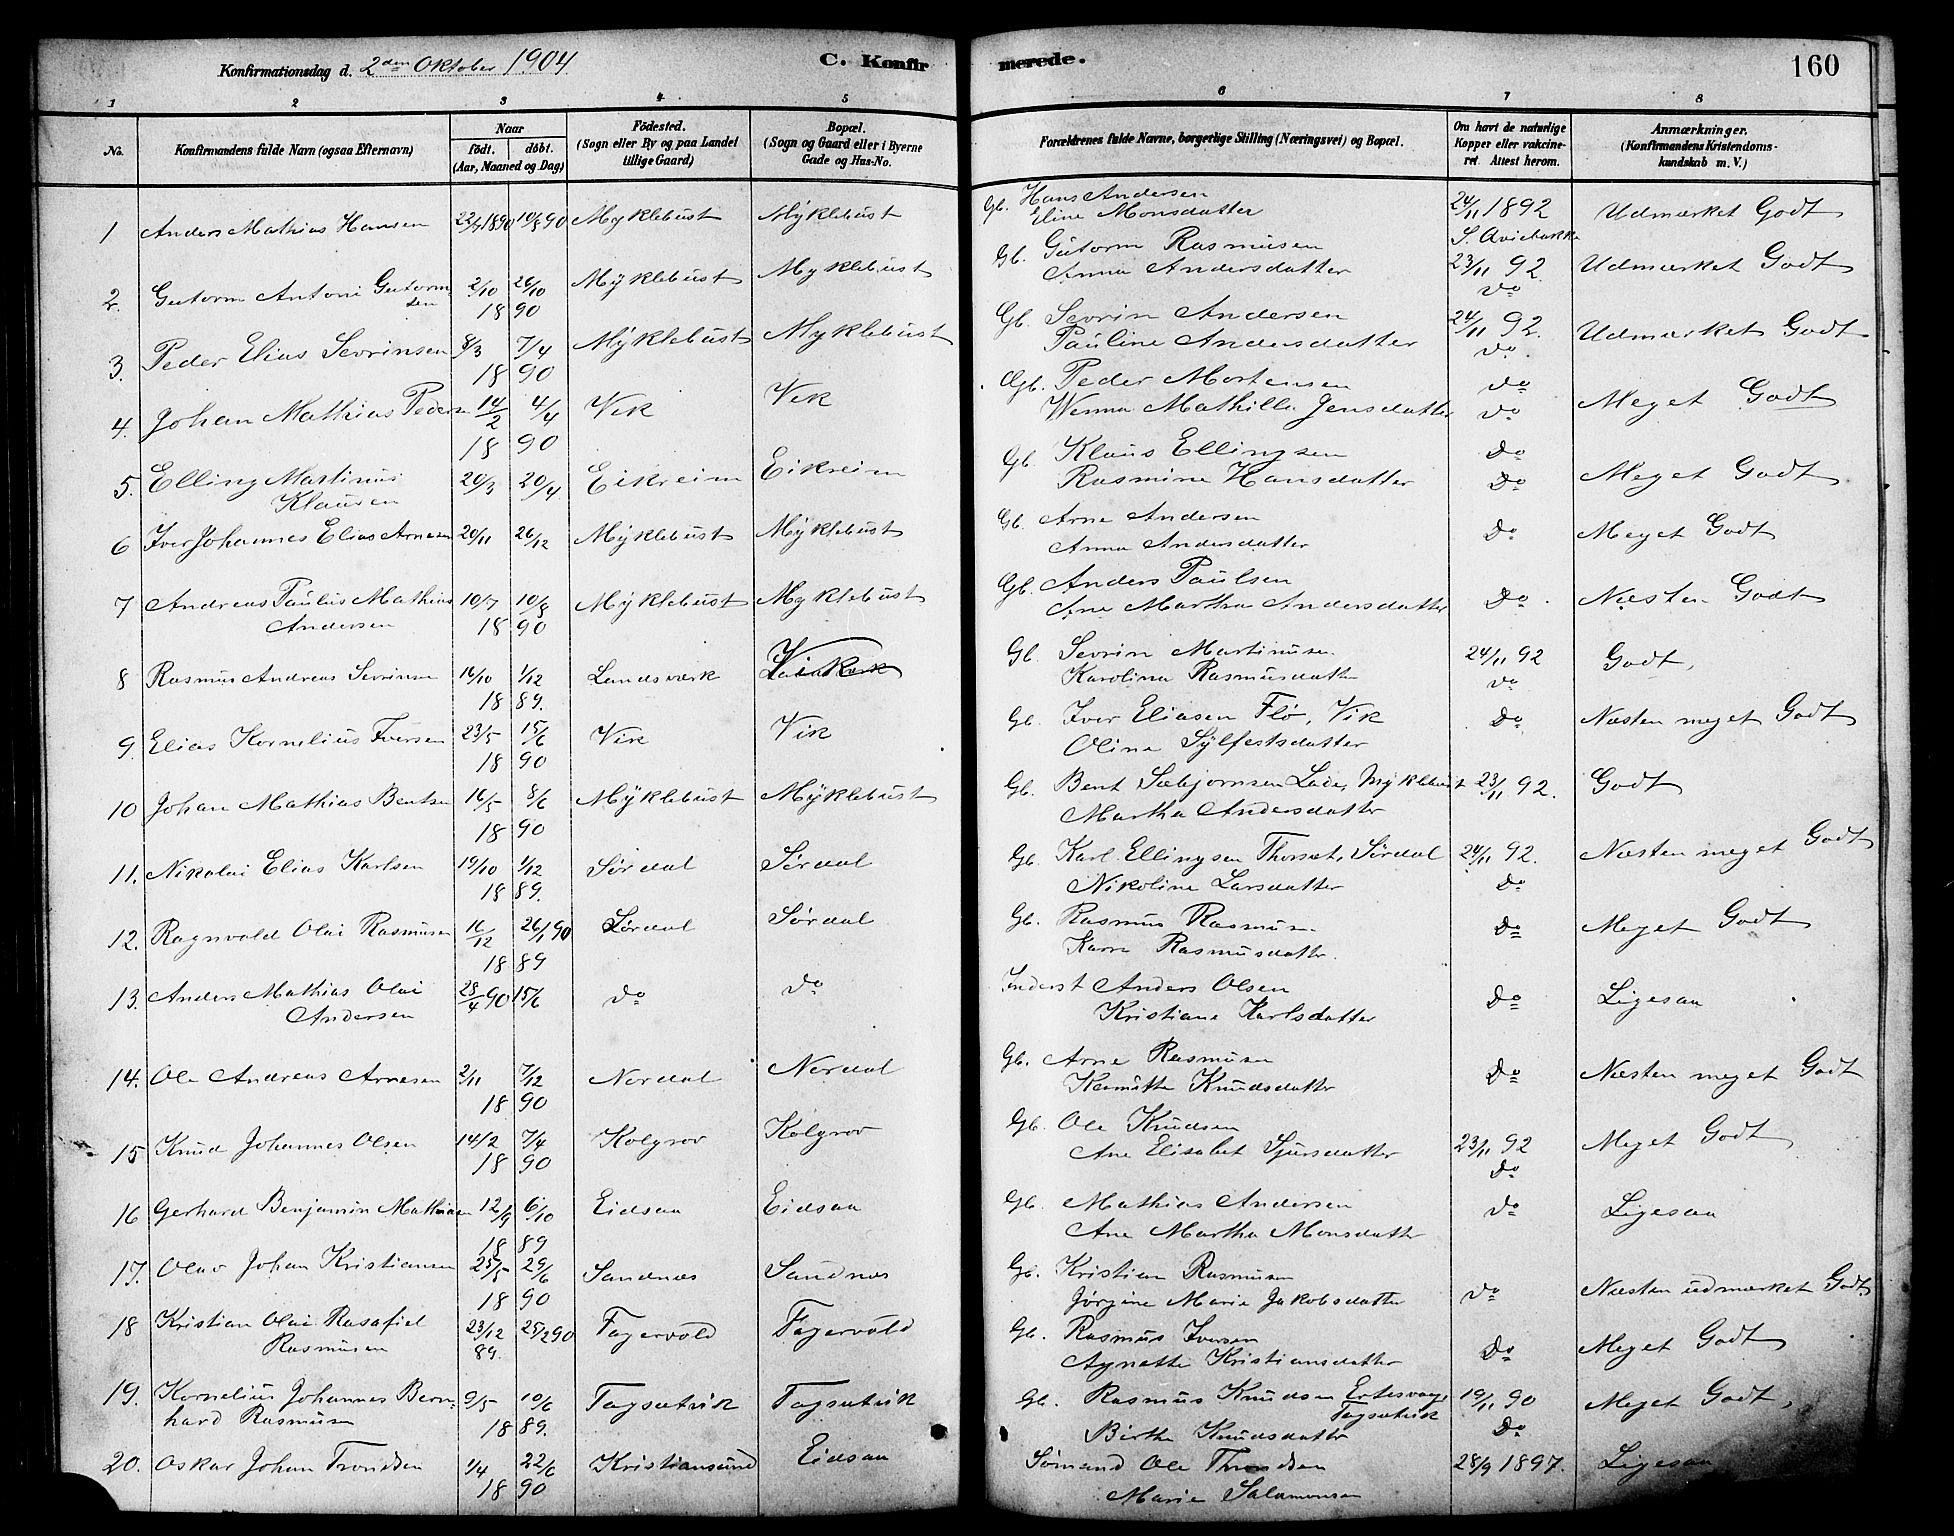 Konfirmationsdag d. 2den Oktober 1904. C. Konfirmerede. 160
1 2 3 4 5 6 7 8
No. Konfirmandens fulde Navn (ogsaa Efternavn) Naar Födt. döbt. (Aar, Maaned og Dag) Födested. (Sogn eller By og paa Landet tillige Gaard) Bopæl. (Sogn og Gaard eller i Byerne Gade og Hus-No. Forældrenes fulde Navne, borgerlige Stilling (Næringsvei) og Bopæl. Om havt de naturlige Kopper eller vakcineret. Attest herom. Anmærkninger. (Konfirmandens Kristendomskundskab m. V.)
1 Anders Mathias Hansen 22/7 1890 10/8 90 Myklebust Myklebust Gb. Hans Andersen 24/11 1892 Udmærket Godt
Eline Monsdatter
2. Gutorm Antoni Gutormsen 2/10 26/10 1890 Myklebust Myklebust Gb. Gutorm Rasmusen 23/11 92. Udmærket Godt
Anna Andersdatter do
3. Peder Elias Sevrinsen 8/3 7/4 1890 Myklebust Myklebust Gb. Sevrin Andersen 24/11 92. Udmærket Godt
Pauline Andersdatter do.
4. Johan Mathias Pedersen 14/2 4/4 1890 Vik Vik Gb. Peder Mortensen do Meget Godt
Wenna Mathilla Jensdatter do
5. Elling Martinus Klausen 20/3 20/4 Eikreim Eikreim Gb. Klaus Ellingsen do Meget Godt
Rasmine Hansdatter do
6 Iver Johannes Elias Arnesen 20/11 26/12 Myklebust Myklebust Gb. Arne Andersen do Meget Godt
Anna Andersdatter
7 Andreas Paulus Mathias Andersen 10/7 10/8 1890 Myklebust Myklebust Gb. Anders Paulsen do Næsten Godt
Ane Martha Andersdatter
8 Rasmus Andreas Sevrinsen 16/10 1/12 1889. Landsværk Vik Gb. Sevrin Martinusen 24/11 92 Godt,
Karolina Rasmusdatter do
9. Elias Kornelius Iversen 23/5 15/6 1890 Vik Vik Gb. Iver Eliasen Flö, Vik do Næsten meget Godt
Oline Sylfestsdatter
10 Johan Mathias Bentsen 16/5 8/6 1890 Myklebust Myklebust Gb. Bent Sæbjørnsen Lade, Myklebust 23/11 92. Godt
Martha Andersdatter
11. Nikolai Elias Karlsen 19/10 1/12 1889. Sørdal Sørdal Gb. Karl Ellingsen Thorsæt, Sördal 24/11 92. Næsten meget Godt
Nikoline Larsdatter do
12. Ragnvald Olai Rasmusen 16/12 26/1 90 1889 Sørdal Sørdal Gb. Rasmus Rasmusen do Meget Godt
Karn Rasmusdatter.
13. Anders Mathias Olai Andersen 28/4 90 15/6 do do Inderst Anders Olsen do Ligesaa
Kristiane Karlsdatter
14. Ole Andreas Arnesen 2/11 7/12 1890 Nordal Nordal Gb. Arne Rasmusen do Næsten meget Godt
Knudsdatter
15 Knud Johannes Olsen 14/2 7/4 1890 Kolgrov Kolgrov Gb. Ole Knudsen 23/11 92 Meget Godt
Ane Elisabet Sjursdatter do
16 Gerhard Benjamin Mathiasen 12/9 6/10 1889 Eidsaa Eidsaa Gb. Mathias Andersen do Ligesaa
Ane Martha Monsdatter
17. Olav Johan Kristiansen 25/5 29/6 1890 Sandnæs Sandnæs Gb. Kristian Rasmusen do Næsten udmærket Godt
Jørgine Marie Jakobsdatter
18 Kristian Olai Rasafiel Rasmusen 23/12 89. 25/2 90 Fagervold Fagervold Gb. Rasmus Iversen do Meget Godt
Agnette Kristiansdatter
19. Kornelius Johannes Bernhard Rasmusen 9/5 10/6 1889. Tagsætvik Tagsætvik Gb. Rasmus Knudsen Ertesvaag, Tagsætvik 19/11 90 Meget Godt,
Birthe Knudsdatter do
20. Oskar Johan Trondsen 1/4 22/6 1890 Kristiansund Eidsaa Sømand Ole Throndsen 28/9 1897. Ligesaa
Marie Salamonsen